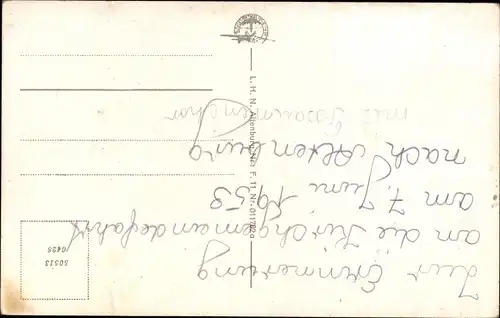 Zur Erinnerung
an die Kirchgemeindefahrt
am 7. Juni 1953
nach Altenburg
mit Posaunenchor
L. H. N. Altenburg, Thür. F. 11. Nr.
50513
/0428